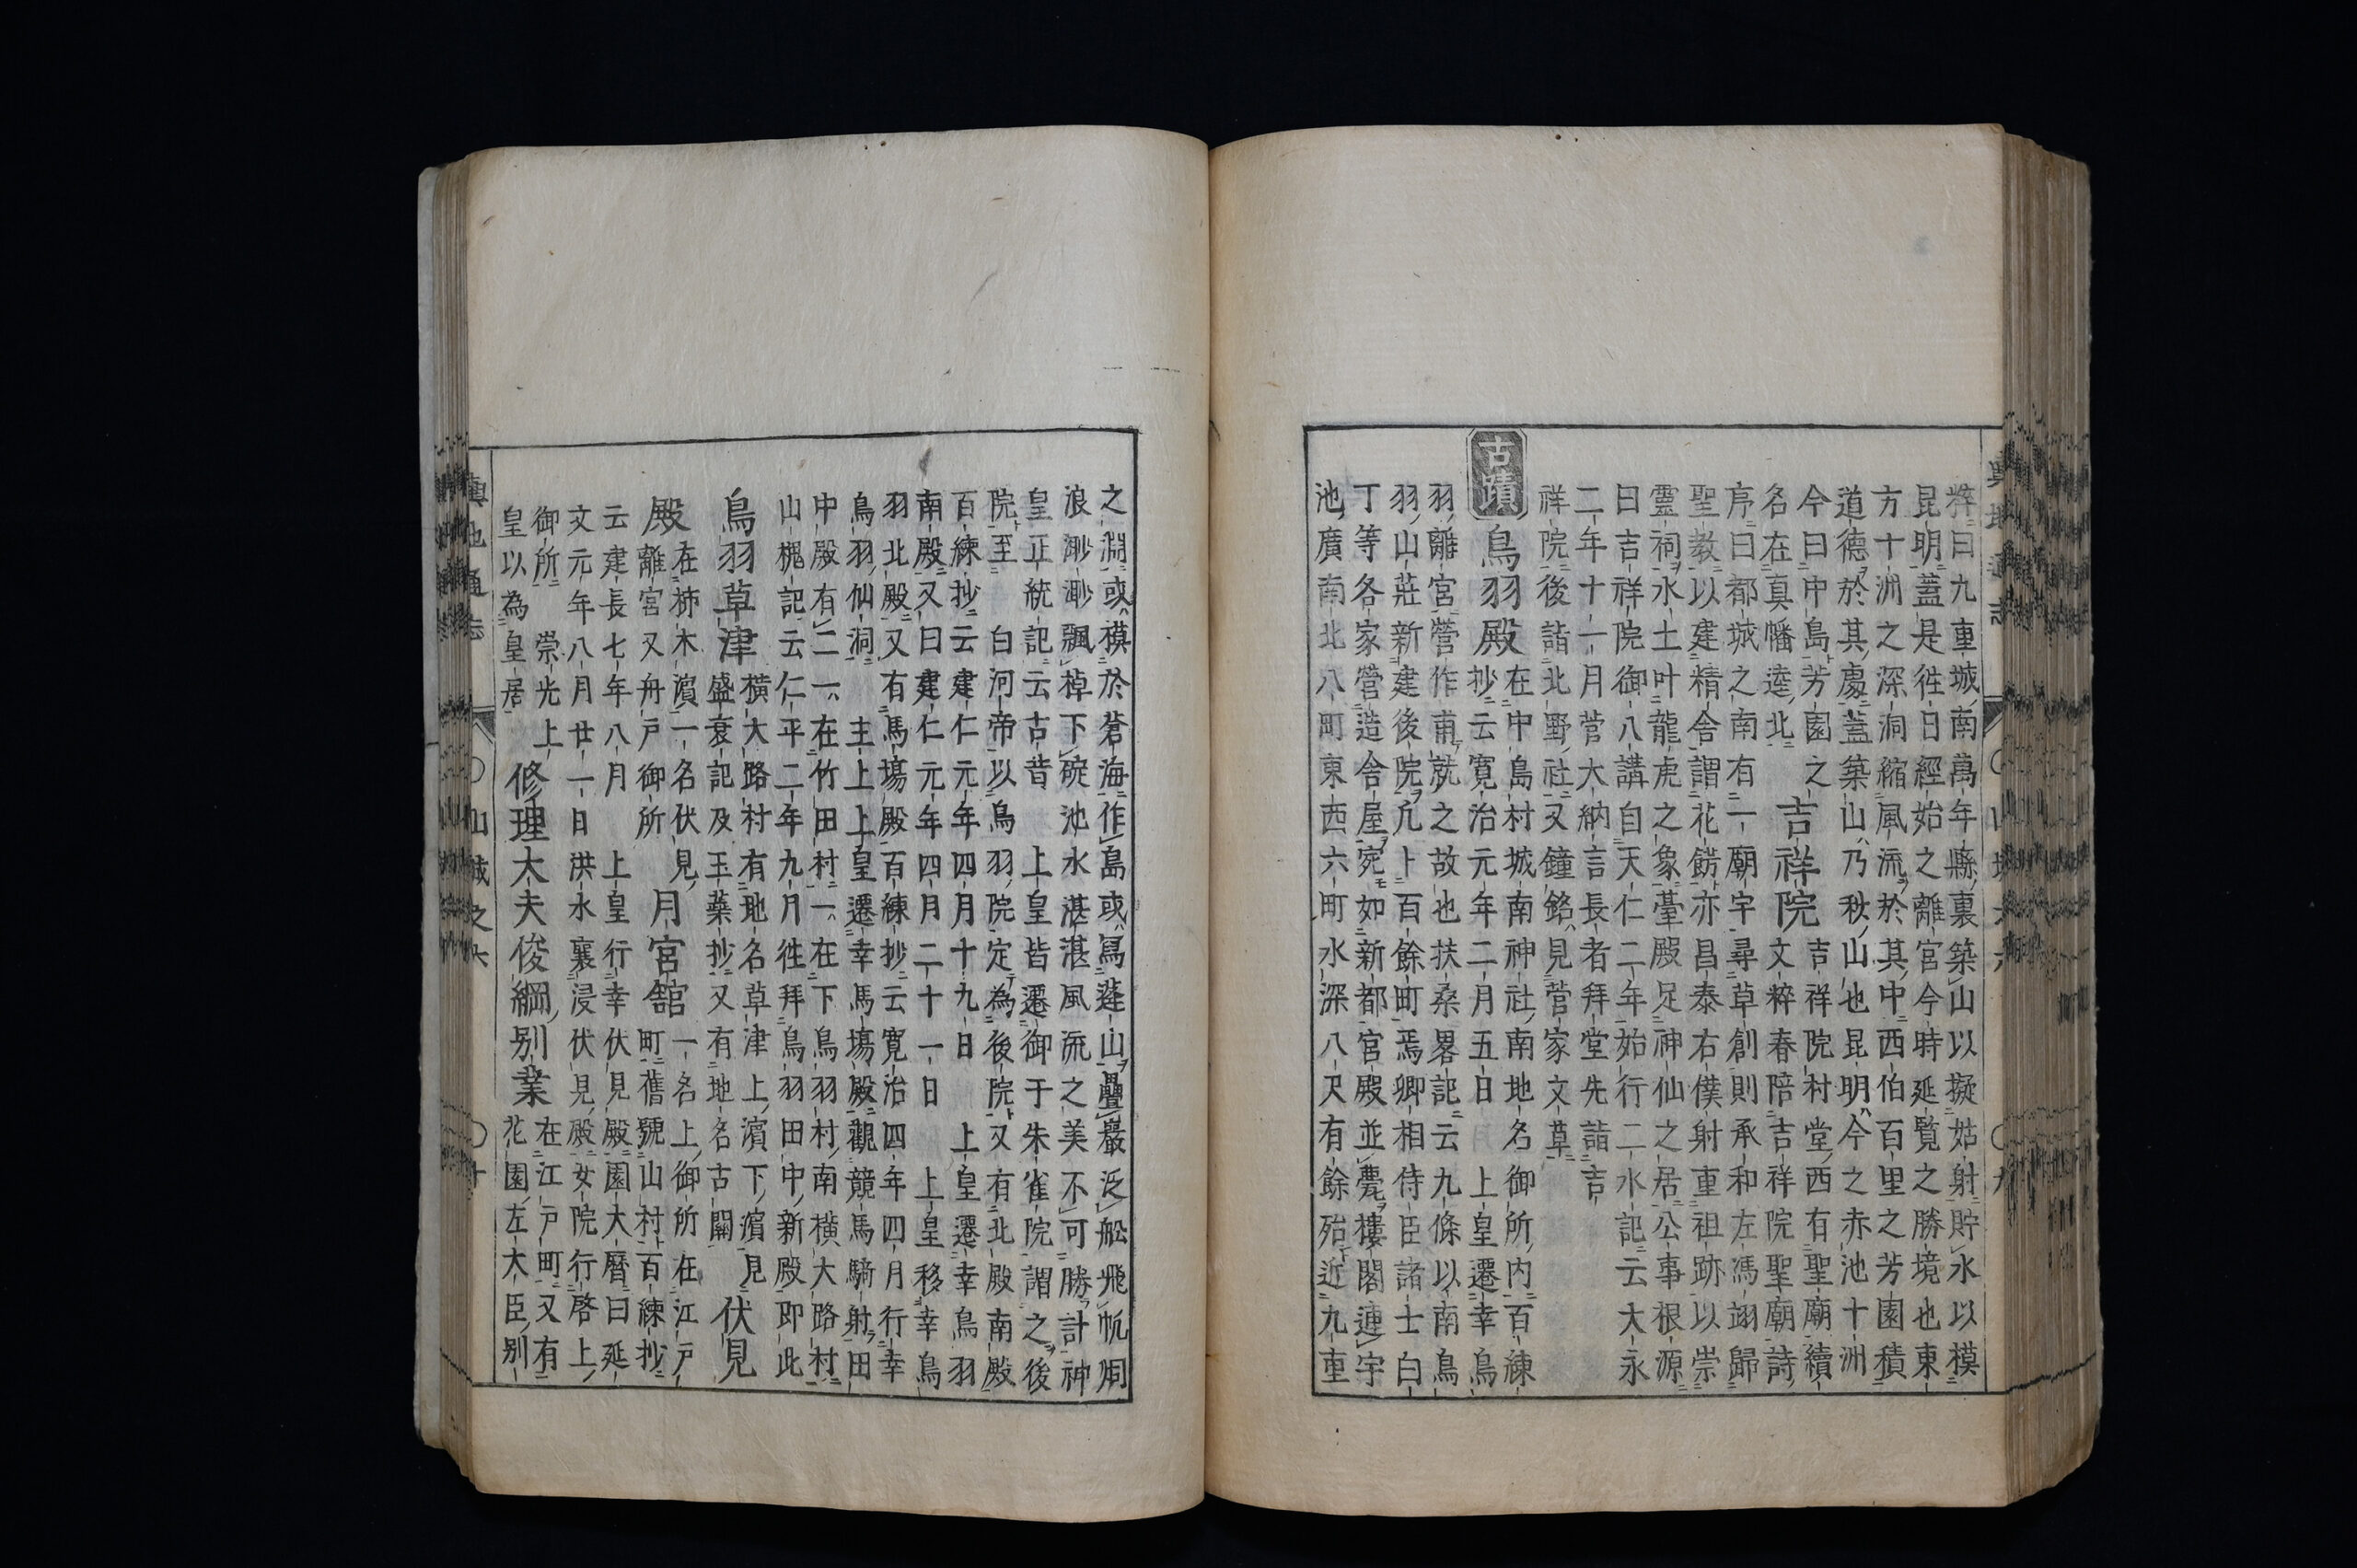 粹曰九重城南萬年縣裏築山以擬姑射貯水以模
昆明蓋是徃日經始之離宮今時延覽之勝境也東
方十洲之深洞縮風流於其中西伯百里之芳園積
道德於其慶蓋築山乃秋山也昆明今之赤池十洲
今曰中島芳園之
吉祥院
吉祥院村堂西有聖廟續
文粹春陪吉祥院聖廟詩
名在真幡逵北
序曰都城之南有一廟宇尋草創則承和左馮翊歸
聖教以建精舍謂花餝亦昌泰右僕射重祖跡以崇
霊祠水土叶龍虎之象臺殿足神仙之居公事根源
曰吉祥院御八講自天仁二年始行二水記云大永
二年十一月菅大納言長者拜堂先詣吉
祥院後詣北野社又鐘銘見菅家文草
古蹟
鳥羽殿
在中島村城南神社南地名御所内百練
抄云寛治元年二月五日 上皇遷幸鳥
羽離宮營作甫就之故也扶桑畧記云九條以南鳥
羽山莊新建後院凡卜百餘町焉卿相侍臣諸士白
丁等各家營造舍屋宛如新都官殿並甍樓閣連宇
池廣南北八町東西六町水深八尺有餘殆近九重
之淵或模於蒼海作島或寫蓬山疊巖泛舩飛帆煙
浪渺渺飄棹下碇池水湛湛風流之美不可勝計神
皇正統記云古昔 上皇皆遷御于朱雀院謂之後
院至 白河帝以鳥羽院定為後院又有北殿南殿
百練抄云建仁元年四月十九日 上皇遷幸鳥羽
南殿又曰建仁元年四月二十一日 上皇移幸鳥
羽北殿又有馬塲殿百練抄云寛治四年四月行幸
鳥羽仙洞 主上上皇遷幸馬塲殿觀競馬騎射田
中殿有二一在竹田村一在下鳥羽村南横大路村
山槐記云仁平二年九月徃拜鳥羽田中新殿即此
鳥羽草津
横大路村有地名草津上濱下濱見
盛衰記及玉藥抄又有地名古開
伏見
殿
在柿木濱一名伏見
離宮又舟戸御所
月宮舘
一名上御所在江戸
町舊號山村百練抄
云建長七年八月 上皇行幸伏見殿園大曆曰延
文元年八月廿一日洪水襄浸伏見殿女院行啓上
御所 崇光上
皇以為皇居
修理大夫俊綱别業
在江戸町又有
花園左大臣别
輿地通志
山城之六
十